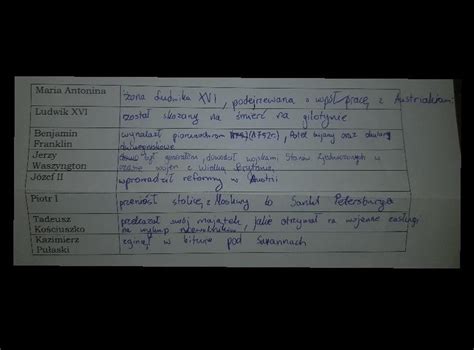 Maria Antonina żona Ludwika XVI, podejrzewana o współpracę z Austriakami
Ludwik XVI został skazany na śmierć na gilotynie
Benjamin wynalazł piorunochron fotel bujany oraz okulary
Franklin dwuogniskowe
Jerzy był generałem, dowodził wojskami Stanów Zjednoczonych w
Waszyngton czasie wojen z Wielką Brytanią
Józef II wprowadził reformy w Austrii
Piotr I przeniósł stolicę z Moskwy do Sankt Petersburga
Tadeusz przekazał swój majątek, jakie otrzymał na wojenne zasługi
Kościuszko na wykup niewolników
Kazimierz zginął w bitwie pod Savannach
Pułaski